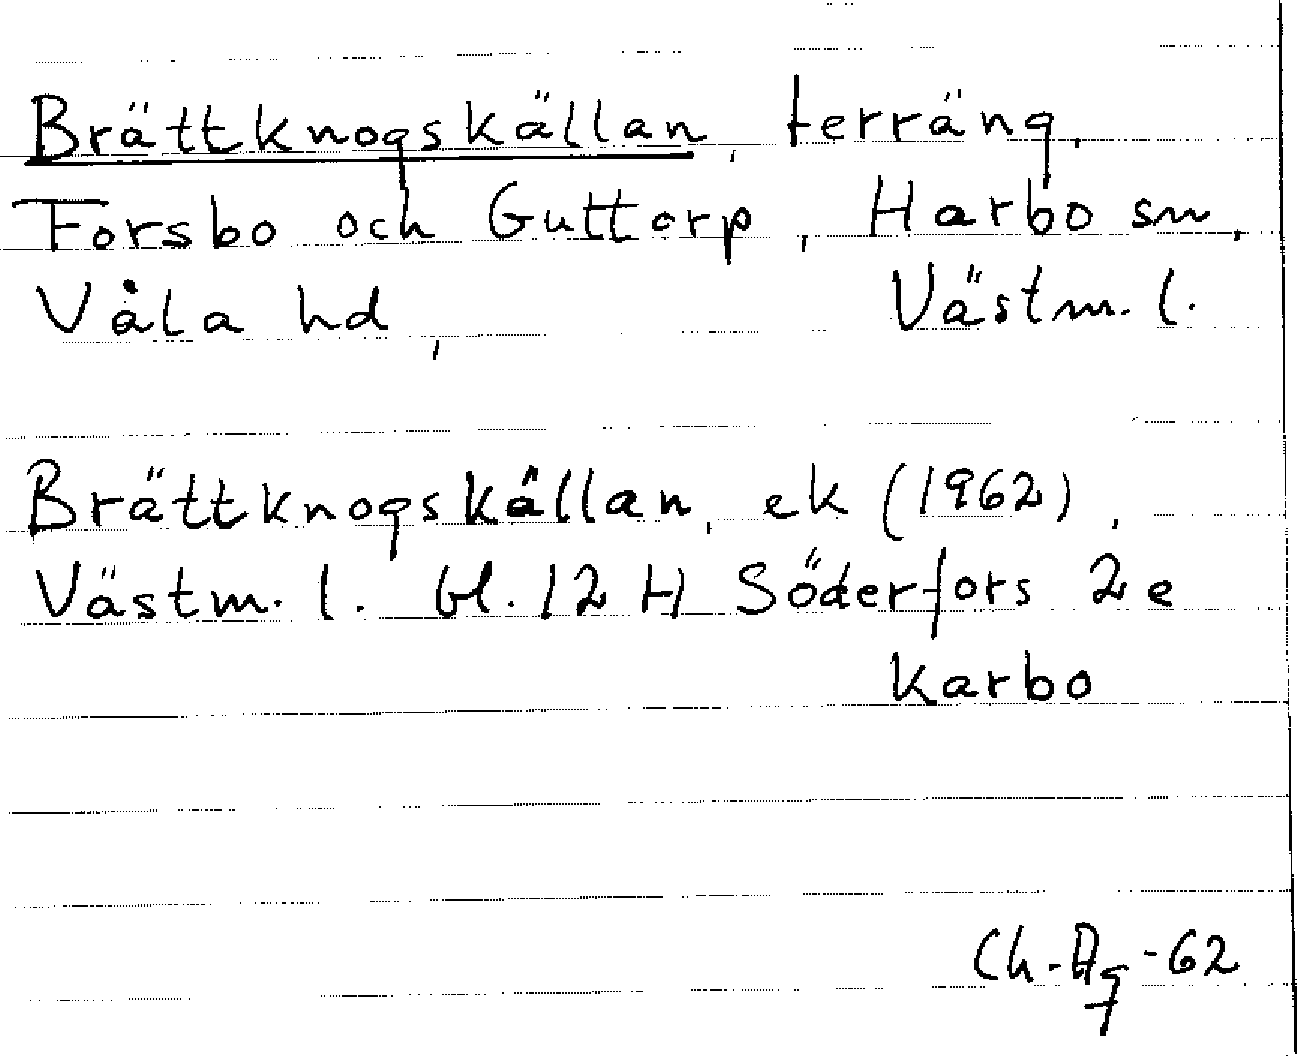 Brättknogskällan, terräng,
Forsbo och Guttorp, Harbo sn,
Våla hd, Västm. l.
Brättknogskällan, ek (1962),
Västm. l. bl. 12 H Söderfors 2 e
Karbo
Ch. Ag -62